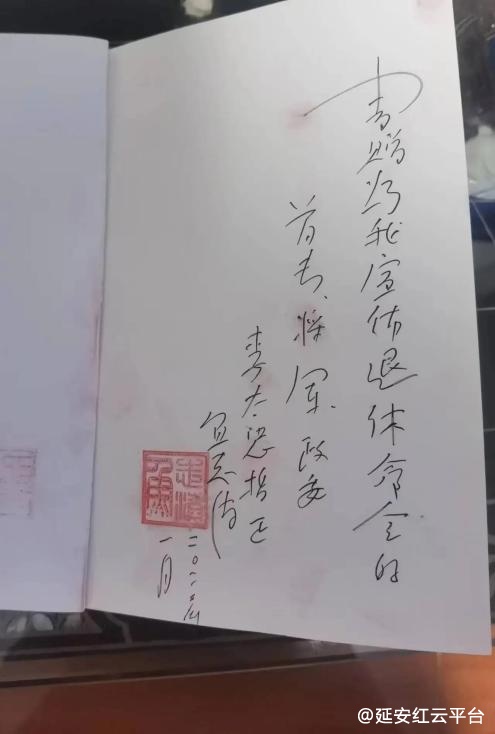 书赠为我宣布退休命令的
首长、将军、政委
李太忠指正
二〇二二年
一月
@延安红云平台